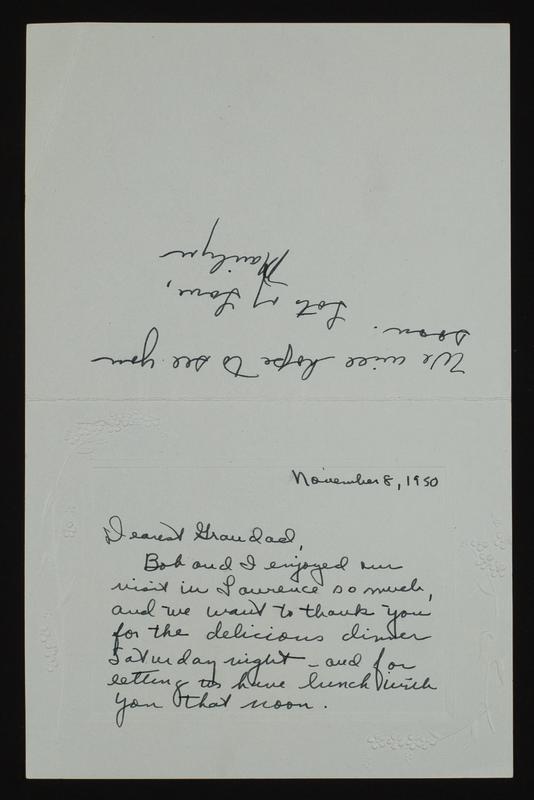 November 8, 1950
Dearest Grandad,
Bob and I enjoyed our
visit in Lawrence so much,
and we want to thank you
for the delicious dinner
Saturday night - and for
letting us have lunch with
you that noon.
We will hope to see you
soon.
Lots of Love,
Marilyn